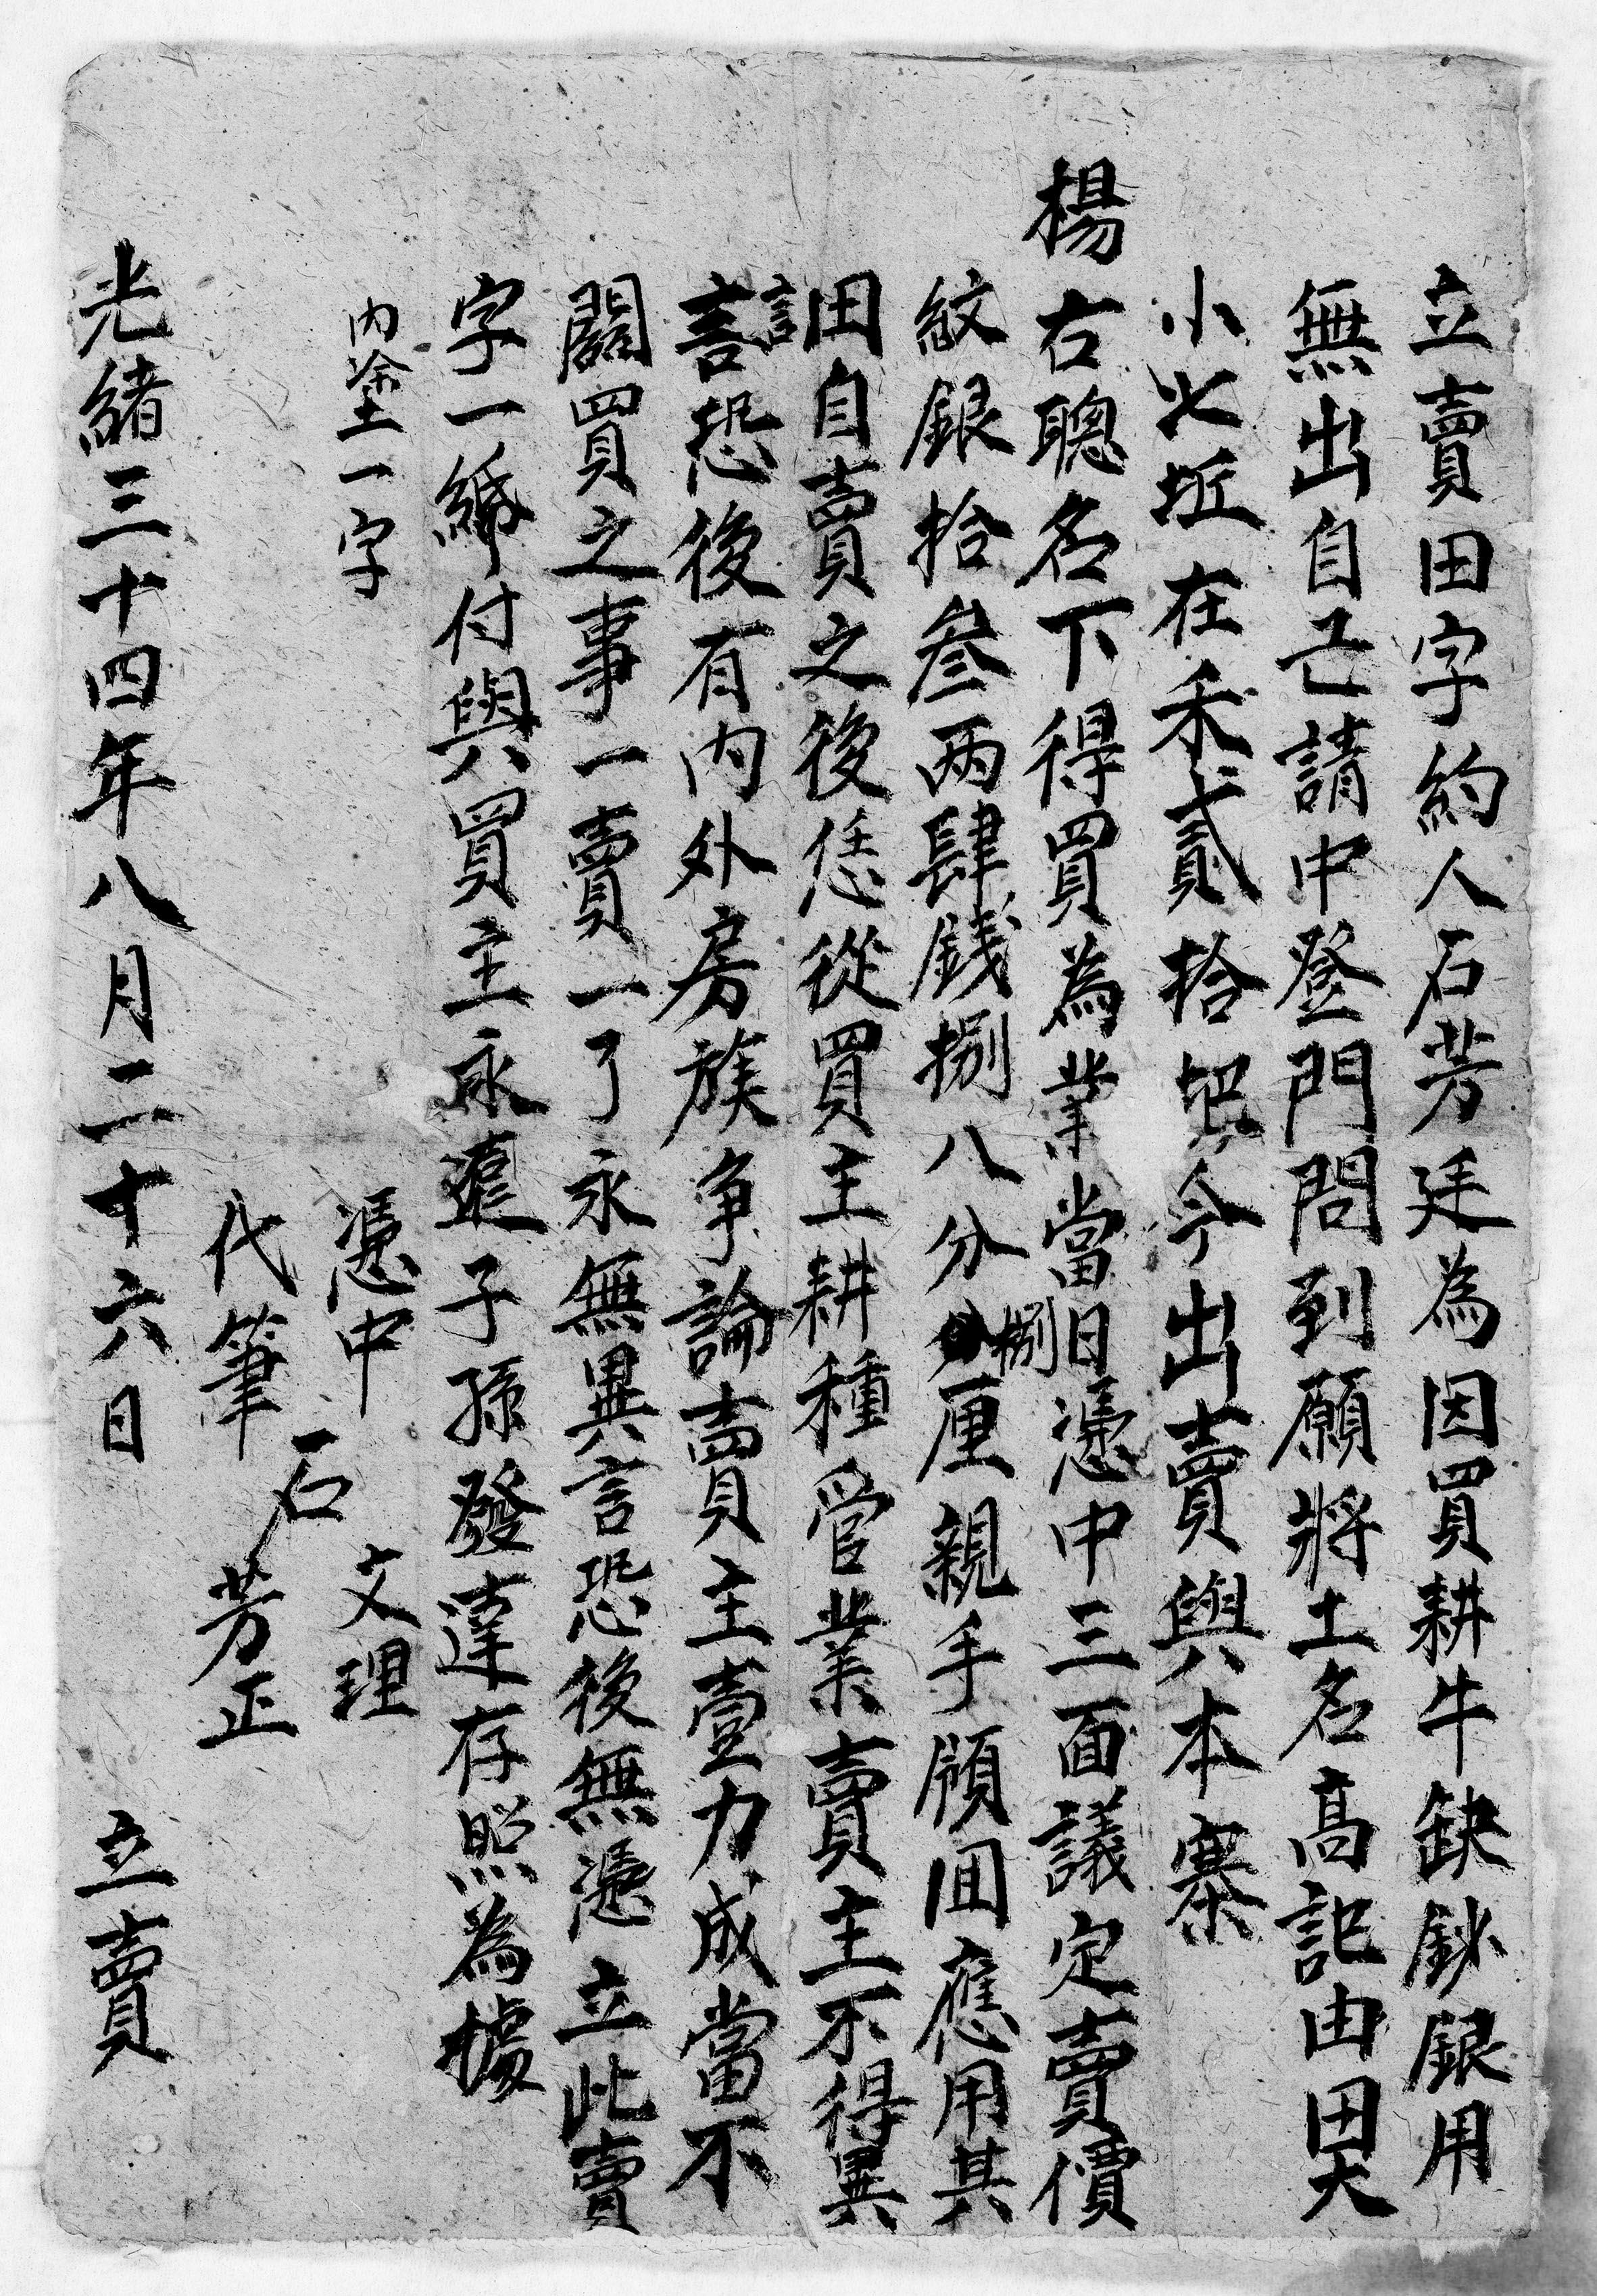 立賣田字約人石芳廷為因買耕牛缺鈔銀用
無出自己請中登門問到願將土名高記由田大
小七坵在禾貳拾把今出賣與本寨
楊右聰名下得買為業當日憑中三面議定賣價
紋銀拾叁両肆錢捌八分捌厘親手領囬應用其
田自賣之後恁從買主耕種管業賣主不得異
言言恐後有内外房族争論賣主壹力成當不
關買之事一賣一了永無異言恐後無憑立此賣
字一紙付與買主永遠子孫發達存照為據
内塗一字
憑中 文理
石
代筆 芳正
光緒三十四年八月二十六日 立賣